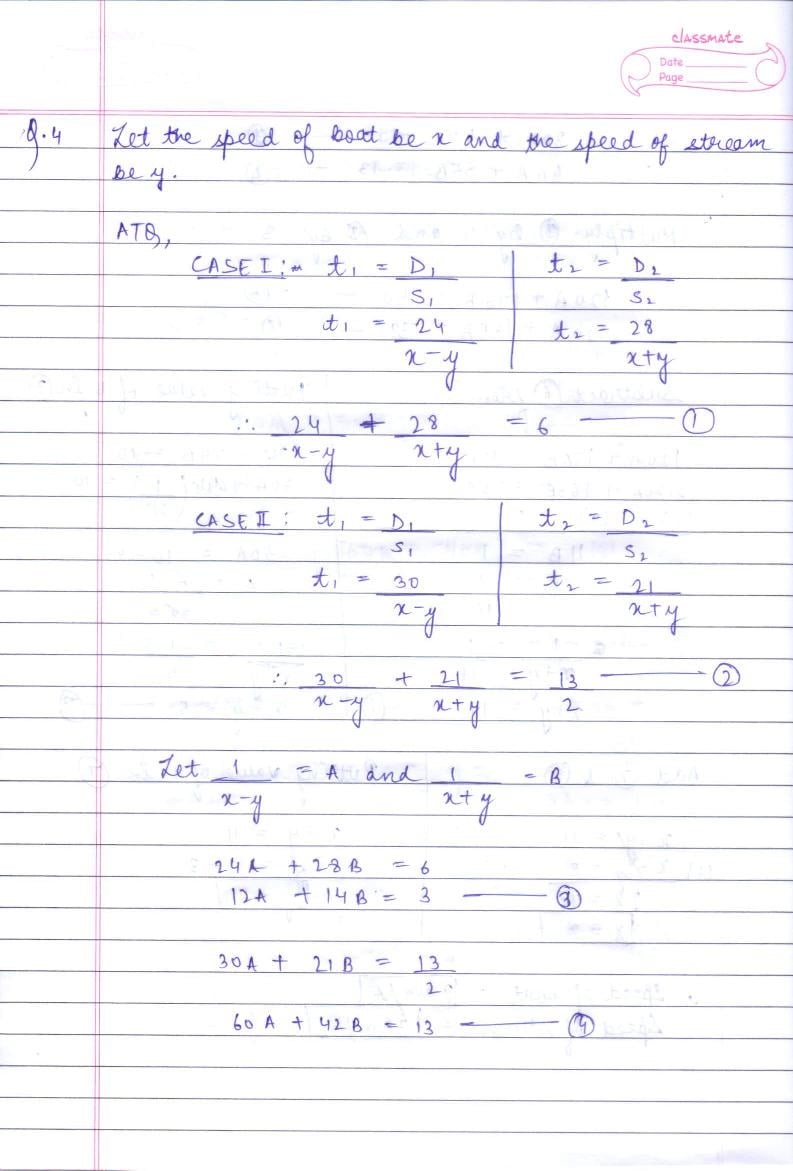 classmate
Date
Page
Q.4 Let the speed of boat be x and the speed of stream
be y.
ATQ,
CASE I :- t₁ = D₁/S₁ | t₂ = D₂/S₂
t₁ = 24/(x-y) | t₂ = 28/(x+y)
∴ 24/(x-y) + 28/(x+y) = 6 — ①
CASE II : t₁ = D₁/S₁ | t₂ = D₂/S₂
t₁ = 30/(x-y) | t₂ = 21/(x+y)
∴ 30/(x-y) + 21/(x+y) = 13/2 — ②
Let 1/(x-y) = A and 1/(x+y) = B
24A + 28B = 6
12A + 14B = 3 — ③
30A + 21B = 13/2
60A + 42B = 13 — ④